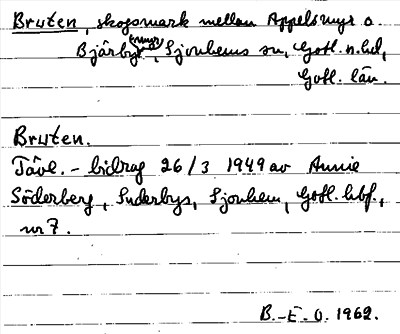 Bruten, skogsmark mellan Appelsmyr o.
Bjärby (myr), Sjonhems sn, Gotl. n. hd,
Gotl. län.
Bruten.
Tävl. - bidrag 26/3 1949 av Annie
Söderberg, Suderbys, Sjonhem, Gotl. hbf.,
nr 7.
B.-E. O. 1962.